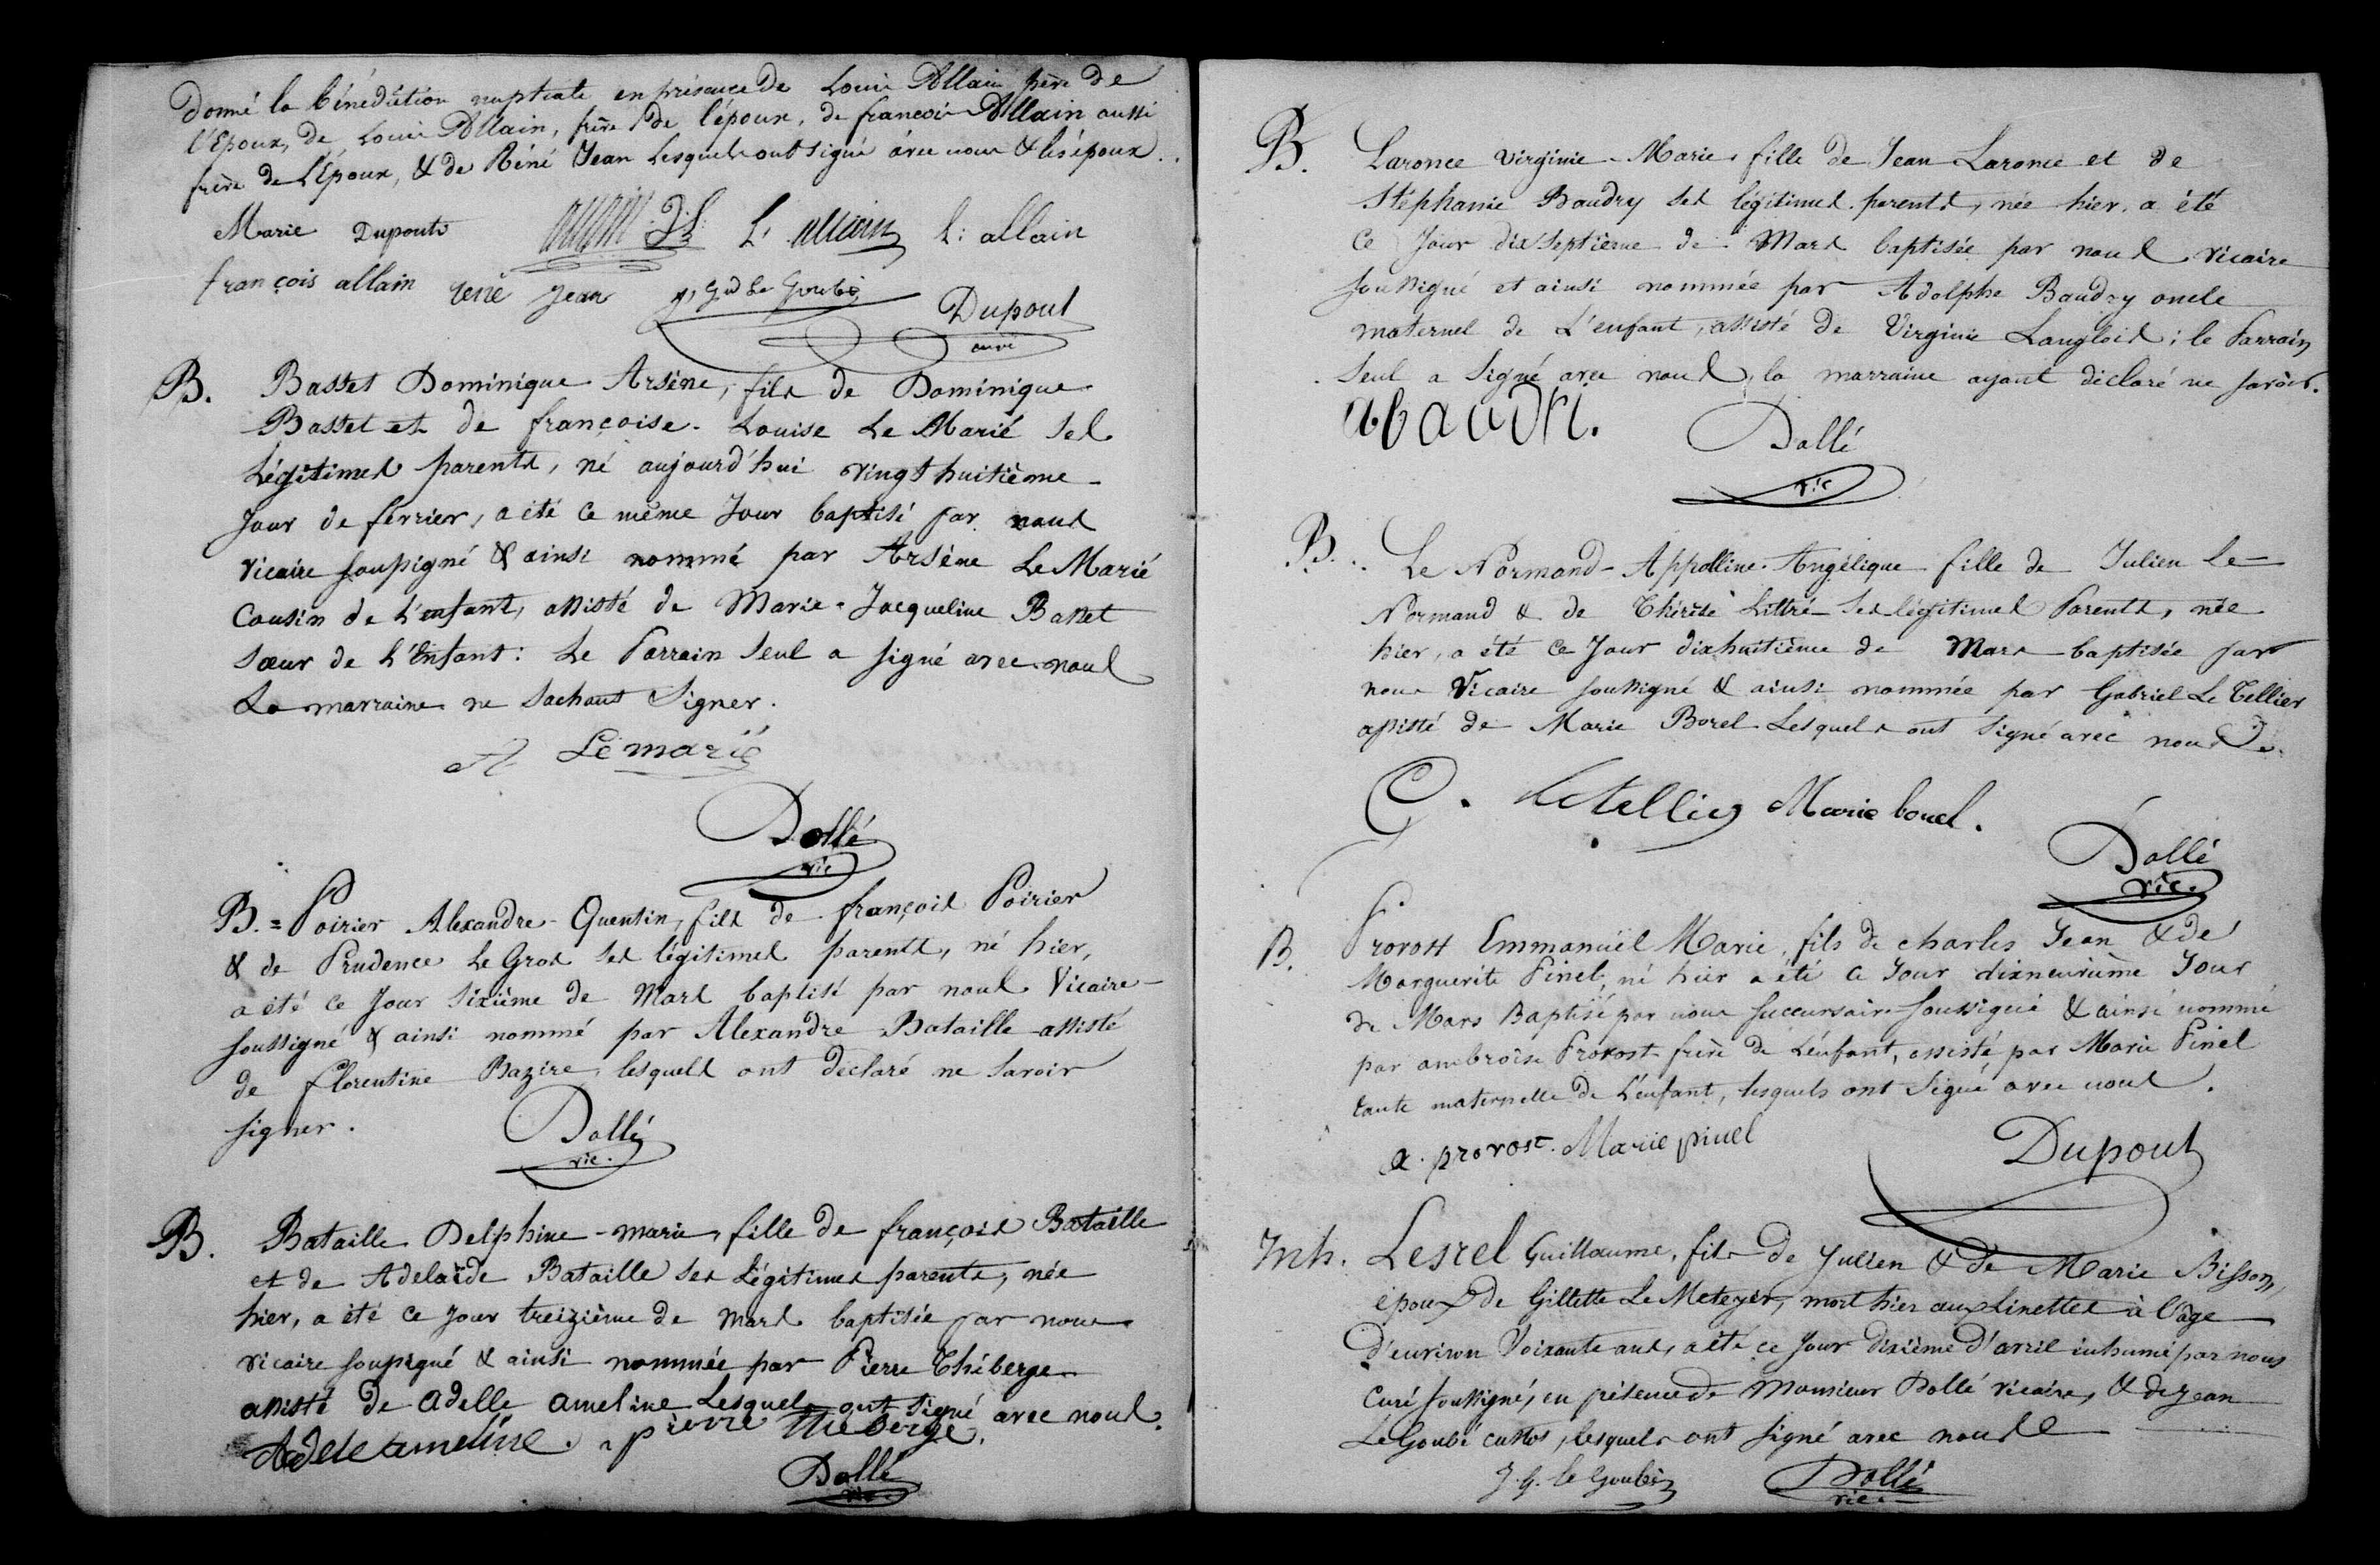 Donné la bénédiction nuptiale en présence de Louis Allain, père de
l'Epoux, de Louis Allain, frère de l'époux, de françois Allain aussi
frère de L'Epoux, & de Réné Jean Lesquels ont signé avec nous & les époux.
Marie Duponts L. allain L: allain
françois allain rené jean Dupont
curé
B. Basset Dominique Arsène, fils de Dominique
Basset et de françoise-Louise Le Marié ses
Légitimes parents, né aujourd'hui vingt huitième
Jour de février, a été ce même Jour baptisé par nous
vicaire soussigné & ainsi nommé par Arsène Le Marié
Cousin de L'enfant, assisté de Marie-Jacqueline Basset
sœur de L'Enfant: Le Parrain seul a signé avec nous
La marraine ne Sachant Signer.
A Lemarié
Dollé
vic
B. = Poirier Alexandre-Quentin, fils de françois Poirier
& de Prudence Le Gros ses légitimes parents, né hier,
a été ce Jour Sixième de Mars baptisé par nous Vicaire
soussigné & ainsi nommé par Alexandre Bataille assisté
de florentine Bazire, lesquels ont déclaré ne savoir
signer.
Dollé
vic.
B. Bataille Delphine-marie, fille de françois Bataille
et de Adelaïde Bataille ses Légitimes parents, née
hier, a été ce jour treizième de Mars baptisée par nous
vicaire soussigné & ainsi nommée par Pierre Théberge
assisté de adelle ameline Lesquels ont signé avec nous.
Adele ameline. pierre théberge.
Dollé
vic
B. Laronce virginie-Marie, fille de Jean Laronce et de
Stéphanie Baudry ses légitimes parents, née hier, a été
ce Jour dixseptième de Mars baptisée par nous vicaire
soussigné et ainsi nommée par Adolphe Baudry oncle
maternel de L'enfant, assisté de Virginie Langlois; le Parrain
Seul a Signé avec nous, la marraine ayant déclaré ne savoir.
abaudri.
Dollé
vic
B. Le Normand-Appolline-Angélique fille de Julien Le
Normand & de Thérèse Littré ses légitimes Parents, née
hier, a été ce Jour dixhuitième de Mars baptisée par
nous Vicaire soussigné & ainsi nommée par Gabriel Le Tellier
assisté de Marie Borel Lesquels ont signé avec nous
G. Letellier Marie borel.
Dollé
vic.
B. Provost Emmanuël Marie, fils de charles Jean & de
Marguerite Pinel, né hier a été ce Jour dixneuvième Jour
de Mars Baptisé par nous succursaire soussigné & ainsi nommé
par ambroise Provost frère de L'enfant, assisté par Marie Pinel
tante maternelle de L'enfant, lesquels ont signé avec nous.
a. provost. Marie pinel
Dupont
Inh. Lesrel Guillaume, fils de Julien & de Marie Bisson,
époux de Gillette Le Meteyer, mort hier aux Linettes à l'âge
D'environ Soixante ans, a été ce jour dixième d'avril inhumé par nous
Curé soussigné, en présence de Monsieur Dollé vicaire, & de jean
Le Goubé custos, lesquels ont signé avec nous
J. G. le Goubé Dollé
vic.